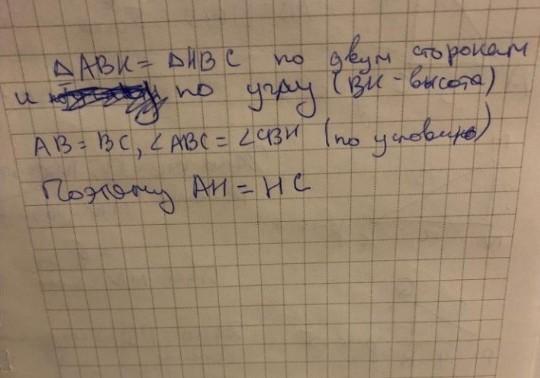 ΔABH = ΔHBC по двум сторонам
и по углу (BH - высота)
AB = BC, ∠ABC = ∠CBH (по условию)
Поэтому AH = HC